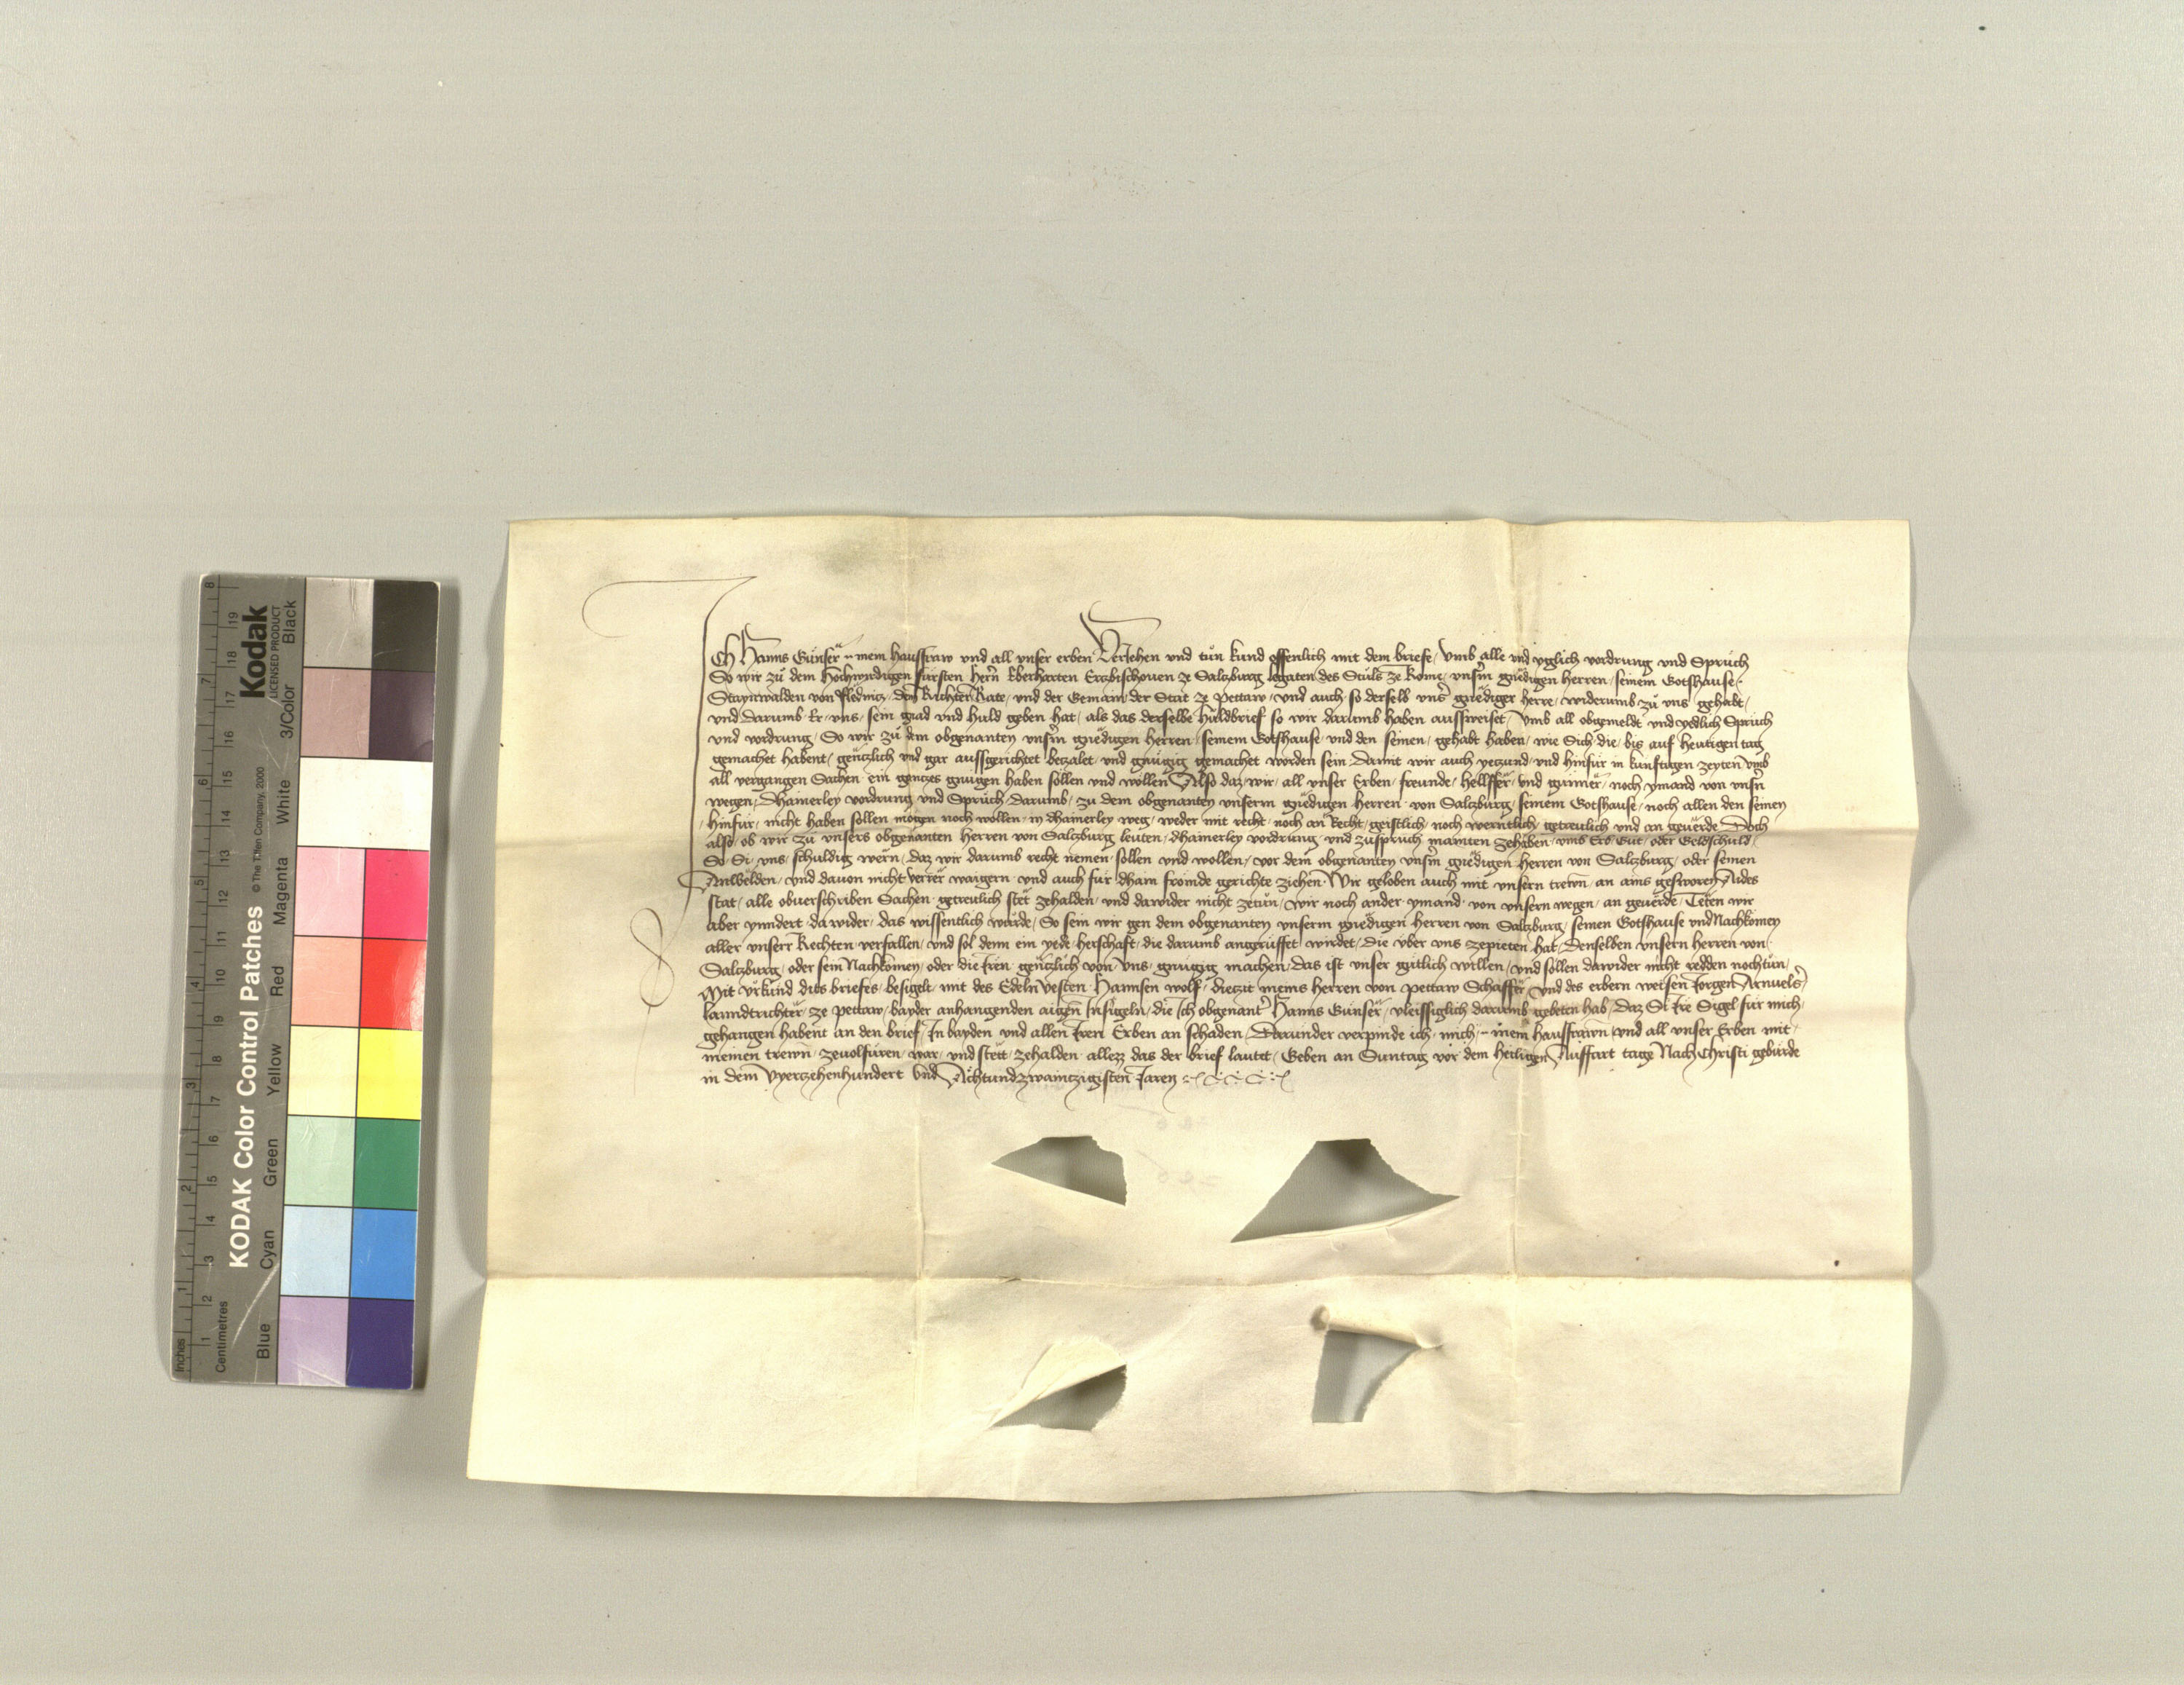 Ich Hanns Günser ·· mein hausfraw vnd all vnser erben Veriehen vnd tün kund offenlich mit dem briefe / Vmb alle vnd yglich vordrung vnd Sprüch
So wir zü dem Hochwirdigen fürsten hern Eberharten Erczbischouen ze Salczburg legaten des Stüls ze Rome / vnserm gnedigen herren / seinem Gotshause /
Staynwalden von Flednicz / dem Richter Rate / vnd der Gemain der Stat ze Pettaw / vnd auch so derselb vnser gnediger herre / widerumb zü vns gehabt /
vnd darumb Er / vns / sein gnad vnd huld geben hat / als das derselbe huldbrief so wir darumb haben aussweiset / Vmb all obgemeldt vnd yedlich Sprüch
vnd vordrung / So wir zü dem obgenanten vnserm gnedigen herren / seinem Gotshause / vnd den seinen / gehabt haben / wie Sich die / bis auf hewtigen tag
gemachet habent / genczlich vnd gar aussgerichtet beczalet / vnd gnügig gemachet worden sein Damit wir auch yeczund / vnd hinfür in künftigen zeyten vmb
all vergangen Sachen ein genczes gnügen haben sollen vnd wollen Also daz wir / all vnser Erben / freunde / hellffer / vnd günner / noch ymand von vnsern
wegen / Dhainerley vordrung vnd Sprüch / darumb / zu dem obgenanten vnserm gnedigen herren von Salczburg / seinem Gotshause / noch allen den seinen
hinfür / nicht haben sollen mögen noch wollen / in dhainerley weg / weder mit recht / noch an Recht / geistlich / noch werntlich / getreulich vnd an geuerde Doch
also / ob wir zü vnsers obgenanten herren von Salczburg leuten / dhainerley vordrung vnd züsprüch mainten zehaben / vmb Erb / Gut / oder Geldschuld /
So Si / vns / schuldig wern / daz wir darumb recht nemen / sollen vnd wollen / vor dem obgenanten vnserm gnedigen herren von Salczburg / oder seinen
Anwelden / vnd dauon nicht verrer waigern vnd auch für dhain frömde gerichte ziehen Wir geloben auch mit vnsern trewn / an ains gesworen Aides
stat / alle obuerschriben Sachen getreulich stet zehalden / vnd dawider nicht zetün / wir noch ander ymand von vnsern wegen / an geuerde / Teten wir
aber ynndert da wider / das wissentlich wurde / So sein wir gen dem obgenanten vnserm gnedigen herren von Salczburg / seinen Gotshause vnd Nachkomen
aller vnserr Rechten verfallen / vnd sol denn ein yede herschaft / die darumb angerüffet wirdet / die vber vns zepieten hat / Denselben vnsern herren von
Salczburg / oder sein Nachkomen / oder die Iren genczlich von vns / gnügig machen / das ist vnser gütlich willen / vnd sollen dawider nicht redden noch tün /
Mit vrkund dits briefes / besigelt mit des Edeln vesten Hannsen wolf / dieczit meins herren von Pettaw Schaffer / vnd des erbern weisen Jorgen Arnuels
lanndtrichter ze Pettaw / bayder anhangenden aigen Insigeln / die Ich obgenanter Hanns Günser / vleissiglich darumb gebeten hab / Daz Si Ire Sigel für mich
gehangen habent an den brief / In bayden vnd allen Iren Erben an schaden / Darunder verpinde ich / mich / ·· mein hausfrawn vnd all vnser Erben mit
meinen trewn / zeuolfüren / war / vnd stett / zehalden allez das der brief lautet / Geben an Suntag vor dem heiligen Auffart tage Nach Christi gebürde
in dem Vyerzehenhundert vnd Achtundzwainczigisten Jaren

Kodak
LICENSED PRODUCT
KODAK Color Control Patches
© The Tiffen Company, 2000
Blue Cyan Green Yellow Red Magenta White 3/Color Black
Inches 1 2 3 4 5 6 7 8
Centimetres 1 2 3 4 5 6 7 8 9 10 11 12 13 14 15 16 17 18 19